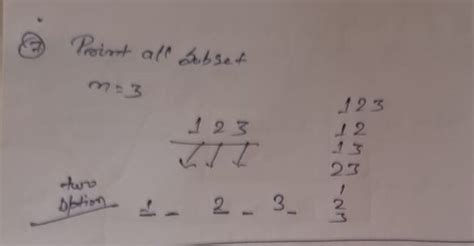 7 Print all subset
n = 3
1 2 3
two option
1 _ 2 _ 3 _
1 2 3
1 2
1 3
2 3
1
2
3